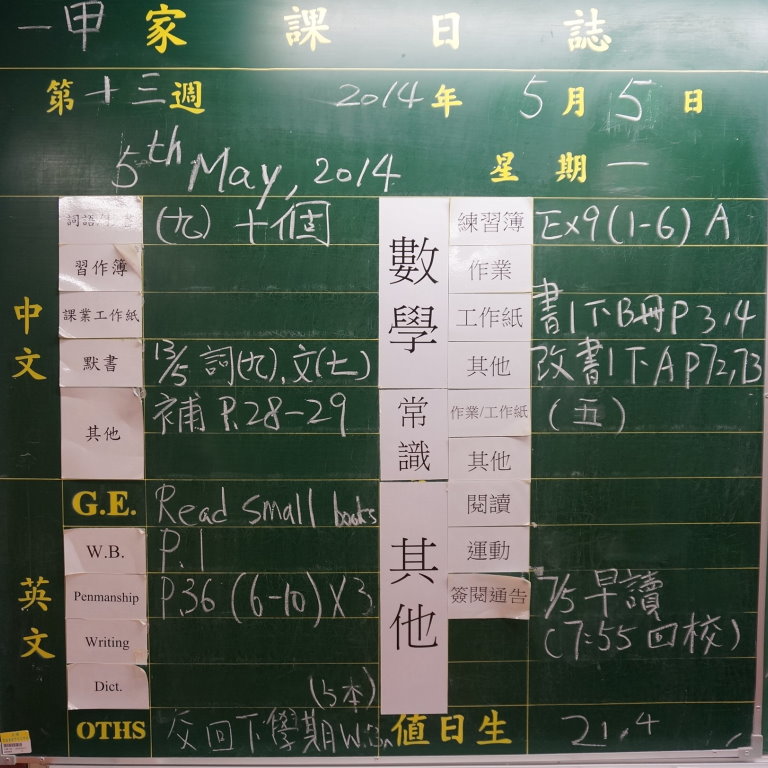 一甲 家課日誌
第十三週 2014年 5月5日
5th May, 2014 星期一
中文
詞語
(九) 十個
習作簿
課業工作紙
默書 13/5 詞(九), 文(七)
其他 補 P.28-29
數學
練習簿 Ex9(1-6) A
作業
工作紙 書1下B冊P3,4
其他 改書1下A P72,73
常識
作業/工作紙 (五)
其他
英文
G.E. Read small books
W.B. P.1
Penmanship P.36 (6-10) X3
Writing
Dict. (5本)
OTHS 交回下學期W.B.
其他
閱讀
運動
簽閱通告 7/5 早讀
(7:55回校)
值日生 21,4